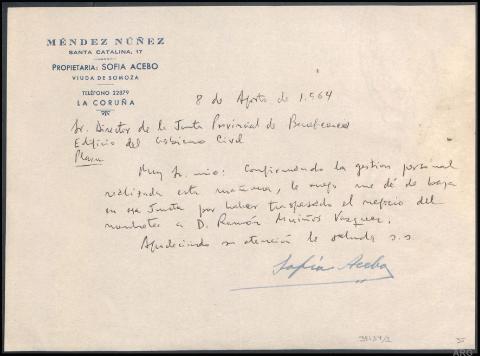 MÉNDEZ NÚÑEZ
SANTA CATALINA, 17
PROPIETARIA: SOFIA ACEBO
VIUDA DE SOMOZA
TELÉFONO 22879
LA CORUÑA
8 de Agosto de 1.964
Sr. Director de la Junta Provincial de Beneficencia
Edificio del Gobierno Civil
Plaza
Muy Sr. mio: Confirmando la gestion personal
realizada esta mañana, le ruego me dé de baja
en esa Junta por haber traspasado el negocio del
a D. Ramón Muiños Vazquez.
Agradeciendo su atención le saluda s.s.
Sofia Acebo
ARG